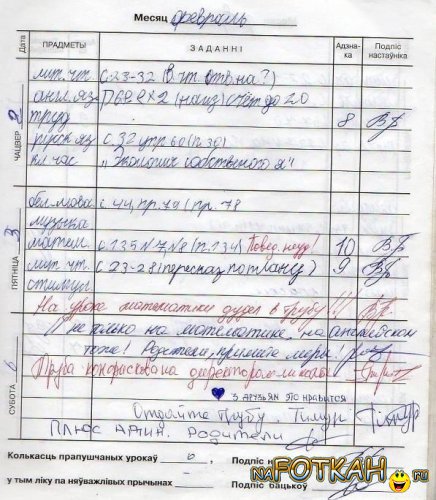 Месяц февраль
Дата ПРАДМЕТЫ ЗАДАННІ Адзна- Подпіс
ка настаўніка
ЧАЦВЕР 2
лит. чт. с. 23-32 (в. чт. отв. на ?)
англ. яз П6 ех2 (наиз) счёт до 20
труд 8
русск. яз с. 32 упр. 60 (п. 30)
кл. час "Экология собственного я"
ПЯТНІЦА 3
бел. мова с. 44, пр. 79 (пр. 78
музыка
матем. с. 135 N7, N8 (п. 134) Повед. неуд! 10
лит. чт. с. 23-28 (пересказ по плану) 9
стимул
СУБОТА
На уроке математики дудел в трубу!!!
И не только на математике, на английском
тоже! Родители, примите меры!
Труба конфискована директором школы
з друзьям пс нравится
Отдайте трубу. Тимур Тімур
Плюс адзин. Родители
Колькасць прапушчаных урокаў 0 Подпіс
у тым ліку па няўважлівых прычынах - Подпіс бацькоў
наFOTKAH.ru